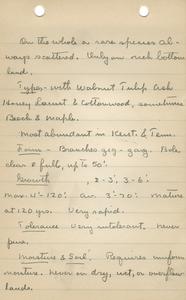 On the whole a rare species. Al-
ways scattered. Only on rich bottom
land.
Types - with Walnut Tulip Ash
Honey Locust & Cottonwood, sometimes
Beech & Maple.
Most abundant in Kent. & Tenn.
Form - Branches zig-zag. Bole
clear & full, up to 50'.
Growth 2-3', 3-6'.
Max. 4'-120'. Av. 3'-70'. Mature
at 120 yrs. Very rapid.
Tolerance Very intolerant. never
pure.
Moisture & Soil. Requires uniform
moisture. never on dry, wet, or overflow
lands.